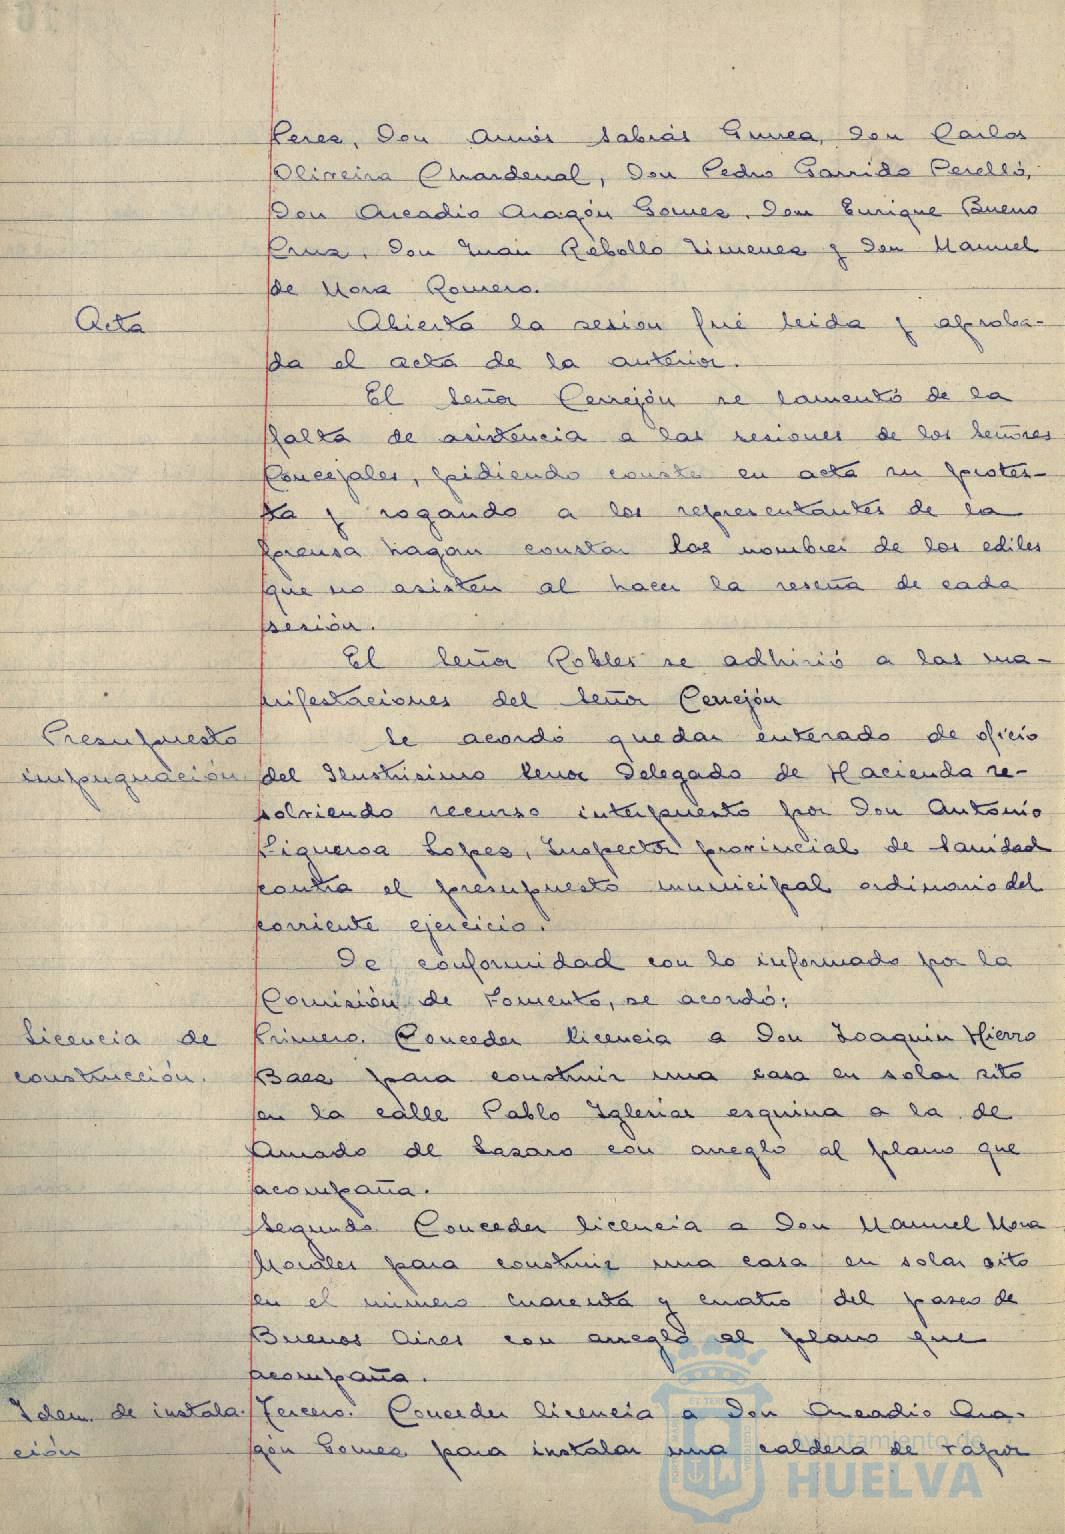 Perez, Don Amós Sabrás Gurrea, Don Carlos
Oliveira Chardenal, Don Pedro Garrido Perelló,
Don Arcadio Aragón Gomez, Don Enrique Bueno
Cruz, Don Juan Rebollo Jimenez y Don Manuel
de Mora Romero.
Acta
Abierta la sesion fué leida y aproba-
da el acta de la anterior.
El Señor Cerrejón se lamentó de la
falta de asistencia a las sesiones de los Señores
Concejales, pidiendo conste en acta su protes-
ta y rogando a los representantes de la
prensa hagan constar los nombres de los ediles
que no asisten al hacer la reseña de cada
sesión.
El Señor Robles se adhirió a las ma-
nifestaciones del Señor Cerrejón
Presupuesto
impugnación
Se acordó quedar enterado de oficio
del Ilustrisimo Señor Delegado de Hacienda re-
solviendo recurso interpuesto por Don Antonio
Figueroa Lopez, Inspector provincial de Sanidad
contra el presupuesto municipal ordinario del
corriente ejercicio.
De conformidad con lo informado por la
Comisión de Fomento, se acordó:
Licencia de
construcción.
Primero. Conceder licencia a Don Joaquin Hierro
Baez para construir una casa en solar sito
en la calle Pablo Iglesias esquina a la de
Amado de Lazaro con arreglo al plano que
acompaña.
Segundo. Conceder licencia a Don Manuel Mora
Morales para construir una casa en solar sito
en el número cuarenta y cuatro del paseo de
Buenos Aires con arreglo al plano que
acompaña.
Idem. de instala-
ción
Tercero. Conceder licencia a Don Arcadio Ara-
gón Gomez para instalar una caldera de vapor
Ayuntamiento de
HUELVA